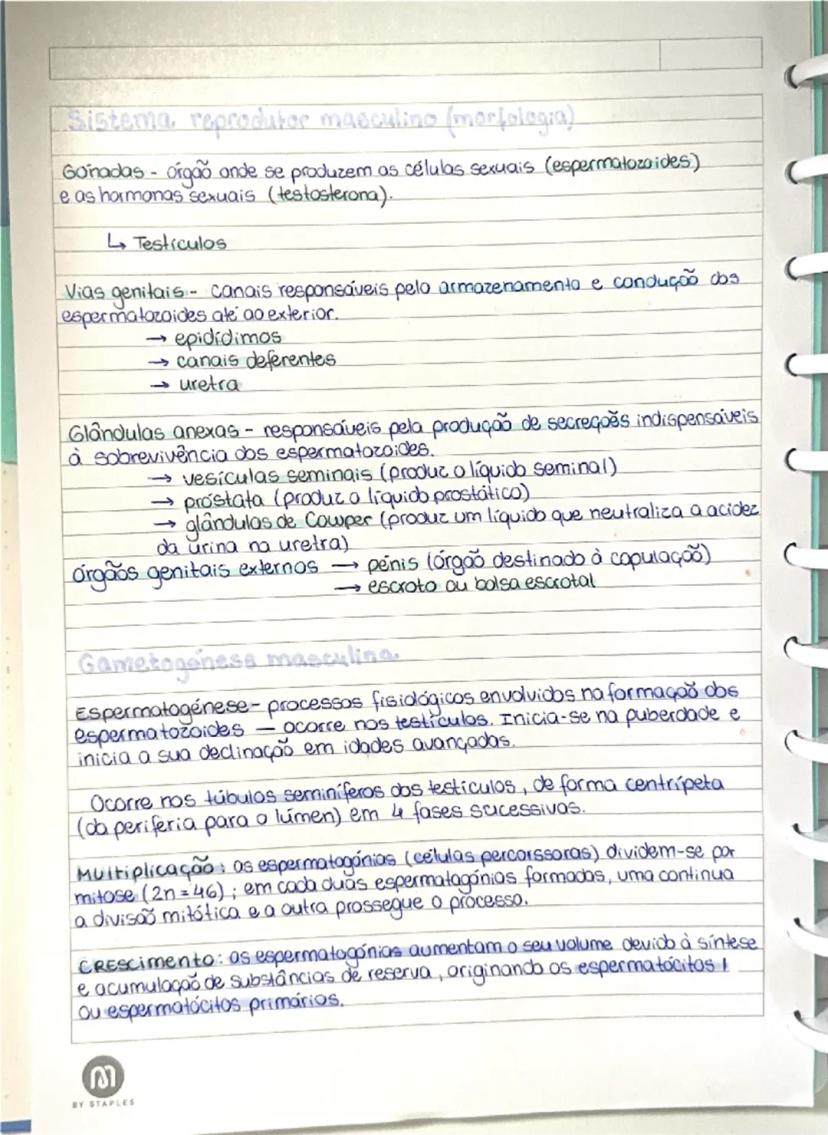 Sistema reprodutor masculino (morfologia)
Gónadas - órgão onde se produzem as células sexuais (espermatozoides)
e as hormonas sexuais (testosterona).
↳ Testículos
Vias genitais - canais responsáveis pelo armazenamento e condução dos
espermatozoides até ao exterior.
→ epidídimos
→ canais deferentes
→ uretra
Glândulas anexas - responsáveis pela produção de secreções indispensáveis
à sobrevivência dos espermatozoides.
→ vesículas seminais (produz o líquido seminal)
→ próstata (produz o líquido prostático)
→ glândulas de Cowper (produz um líquido que neutraliza a acidez
da urina na uretra)
órgãos genitais externos → pénis (órgão destinado à copulação)
→ escroto ou bolsa escrotal
Gametogénese masculina
Espermatogénese - processos fisiológicos envolvidos na formação dos
espermatozoides — ocorre nos testículos. Inicia-se na puberdade e
inicia a sua declinação em idades avançadas.
Ocorre nos túbulos seminíferos dos testículos, de forma centrípeta
(da periferia para o lúmen) em 4 fases sucessivas.
Multiplicação: as espermatogónias (células percorssoras) dividem-se por
mitose (2n = 46); em cada duas espermatogónias formadas, uma continua
a divisão mitótica e a outra prossegue o processo.
CRESCimento: as espermatogónias aumentam o seu volume devido à síntese
e acumulação de substâncias de reserva, originando os espermatócitos I
ou espermatócitos primários.
M
BY STAPLES